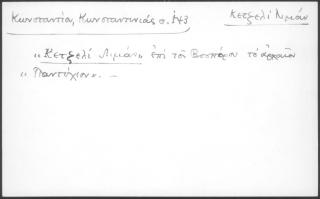 Κωνσταντία, Κωνσταντινιάς σ. 143
Κετζελί Λιμάν
"Κετζελί Λιμάν" ἐπὶ τοῦ Βοσπόρου τὸ ἀρχαῖον
"Παντείχιον". —